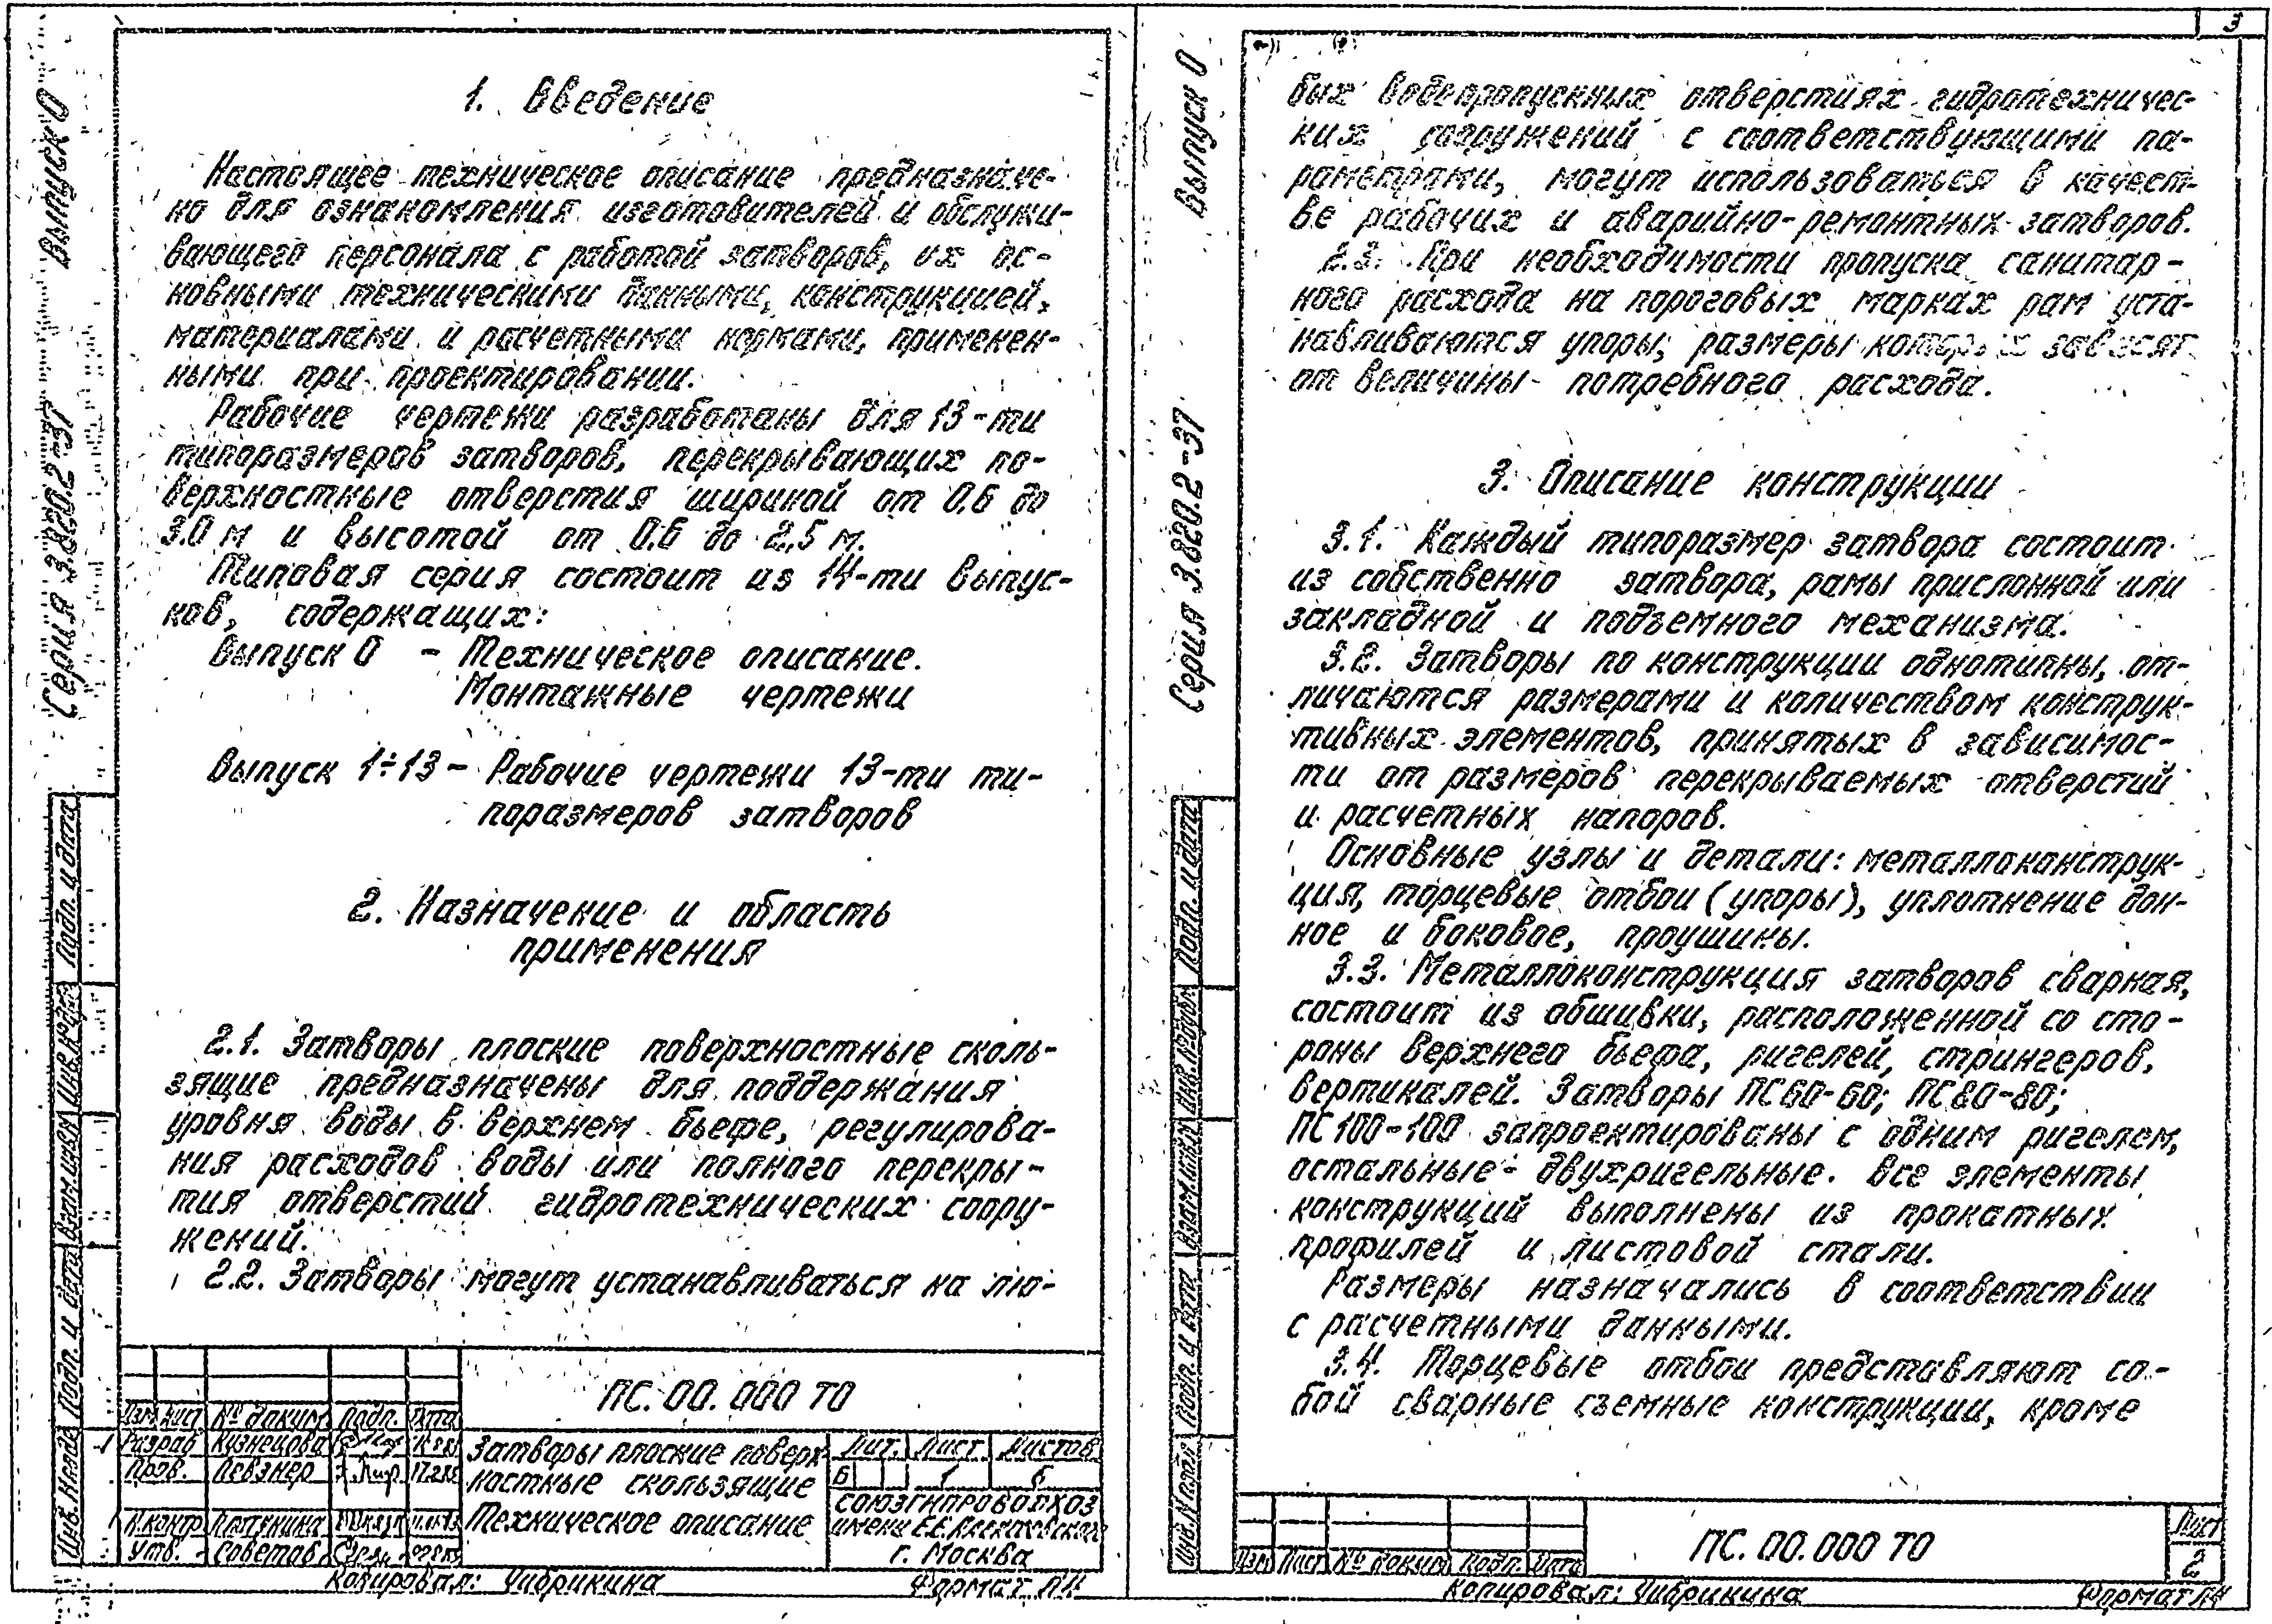 Выпуск 0
Серия 3.820.2-37
1. Введение
Настоящее техническое описание предназначе-
но для ознакомления изготовителей и обслужи-
вающего персонала с работой затворов, их ос-
новными техническими данными, конструкцией,
материалами и расчетными нормами, применен-
ными при проектировании.
Рабочие чертежи разработаны для 13-ти
типоразмеров затворов, перекрывающих по-
верхностные отверстия шириной от 0.6 до
3.0 м и высотой от 0.6 до 2.5 м.
Типовая серия состоит из 14-ти выпус-
ков, содержащих:
Выпуск 0 - Техническое описание.
Монтажные чертежи
Выпуск 1÷13 - Рабочие чертежи 13-ти ти-
поразмеров затворов
2. Назначение и область
применения
2.1. Затворы плоские поверхностные сколь-
зящие предназначены для поддержания
уровня воды в верхнем бьефе, регулирова-
ния расходов воды или полного перекры-
тия отверстий гидротехнических соору-
жений.
2.2. Затворы могут устанавливаться на лю-
Подп. и дата
Взам. инв. №
Подп. и дата
ПС. 00. 000 ТО
Изм Лист № докум. Подп. Дата
Разраб. Кузнецова
Пров. Певзнер
Н.контр
Утв. Советов
Затворы плоские поверх
ностные скользящие
Техническое описание
Лит. Лист Листов
Б 1 6
СОЮЗГИПРОВОДХОЗ
имени Е.Е. Алексеевского
г. Москва
Копировал: Чибрикина Формат А4
3
Выпуск 0
Серия 3.820.2-37
бых водопропускных отверстиях гидротехничес-
ких сооружений с соответствующими па-
раметрами, могут использоваться в качест-
ве рабочих и аварийно-ремонтных затворов.
2.3. При необходимости пропуска санитар-
ного расхода на пороговых марках рам уста-
навливаются упоры, размеры которых зависят
от величины потребного расхода.
3. Описание конструкции
3.1. Каждый типоразмер затвора состоит
из собственно затвора, рамы прислонной или
закладной и подъемного механизма.
3.2. Затворы по конструкции однотипны, от-
личаются размерами и количеством конструк-
тивных элементов, принятых в зависимос-
ти от размеров перекрываемых отверстий
и расчетных напоров.
Основные узлы и детали: металлоконструк-
ция, торцевые отбои (упоры), уплотнение дон-
ное и боковое, проушины.
3.3. Металлоконструкция затворов сварная,
состоит из обшивки, расположенной со сто-
роны верхнего бьефа, ригелей, стрингеров,
вертикалей. Затворы ПС60-60; ПС80-80;
ПС100-100 запроектированы с одним ригелем,
остальные - двухригельные. Все элементы
конструкций выполнены из прокатных
профилей и листовой стали.
Размеры назначались в соответствии
с расчетными данными.
3.4. Торцевые отбои представляют со-
бой сварные съемные конструкции, кроме
Подп. и дата
Взам. инв. №
Подп. и дата
Инв. № подл
Изм Лист № докум Подп. Дата
ПС. 00. 000 ТО
Лист
2
Копировал: Чибрикина Формат А4